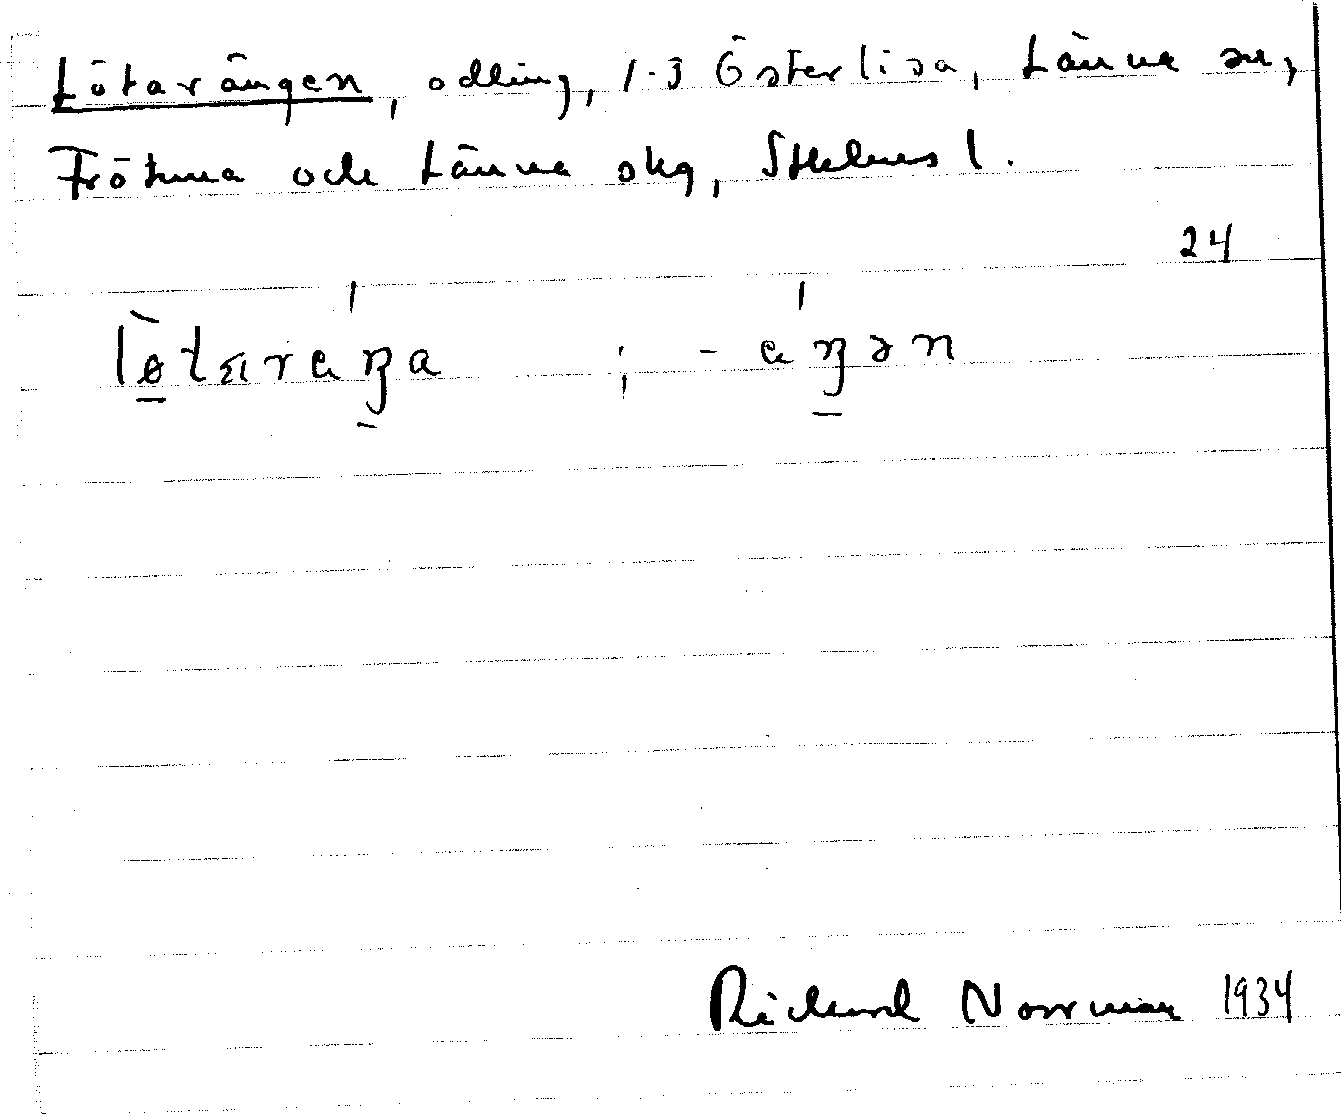 Lötarängen, odling, 1-3 Österlisa, Länna sn,
Frötuna och Länna skg, Sthlms l.
24
Richard Norrman 1934